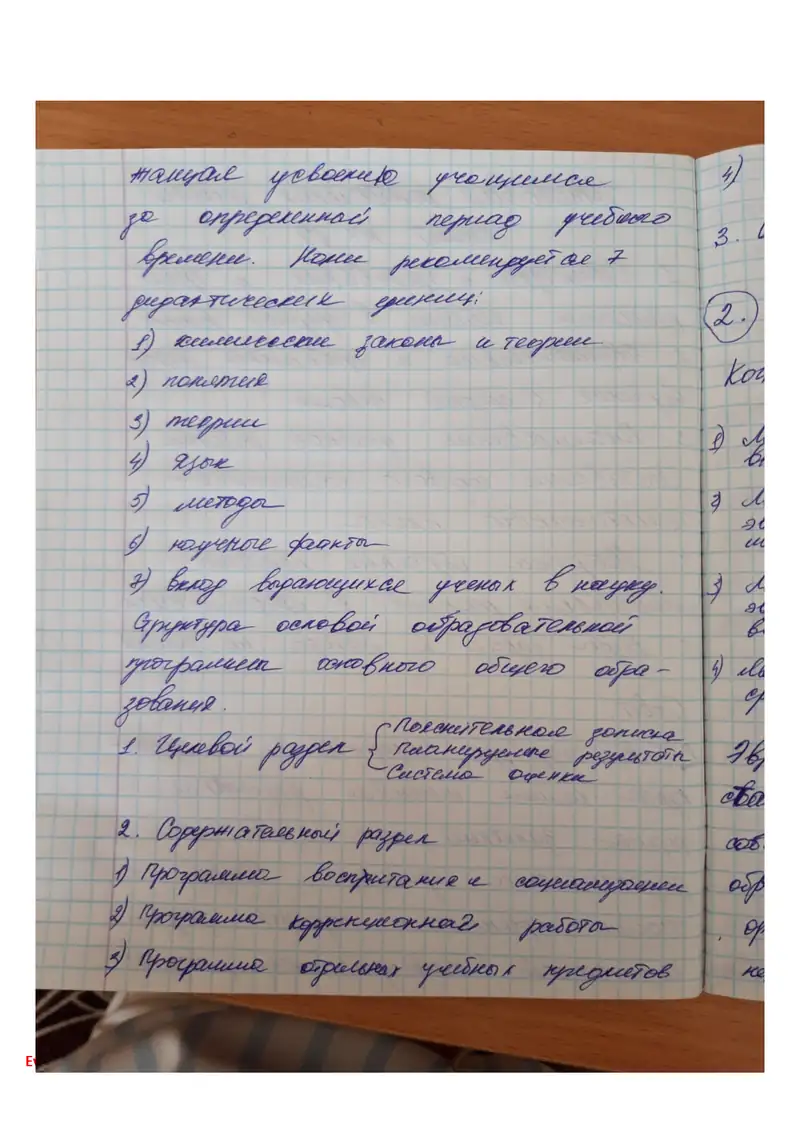 жащая усвоению учащимся
за определенный период учебного
времени. Нами рекомендуется 7
дидактических единиц:
1) химические законы и теории
2) понятия
3) теории
4) язык
5) методы
6) научные факты
7) вклад выдающихся ученых в науку.
Структура основой образовательной
программы основного общего обра-
зования.
1. Целевой раздел { Пояснительная записка
Планируемые результаты
Система оценки
2. Содержательный раздел
1) Программа воспитания и социализации
2) Программа коррекционной работы
3) Программа отдельных учебных предметов
4)
3.
2.
1)
2)
3)
4)